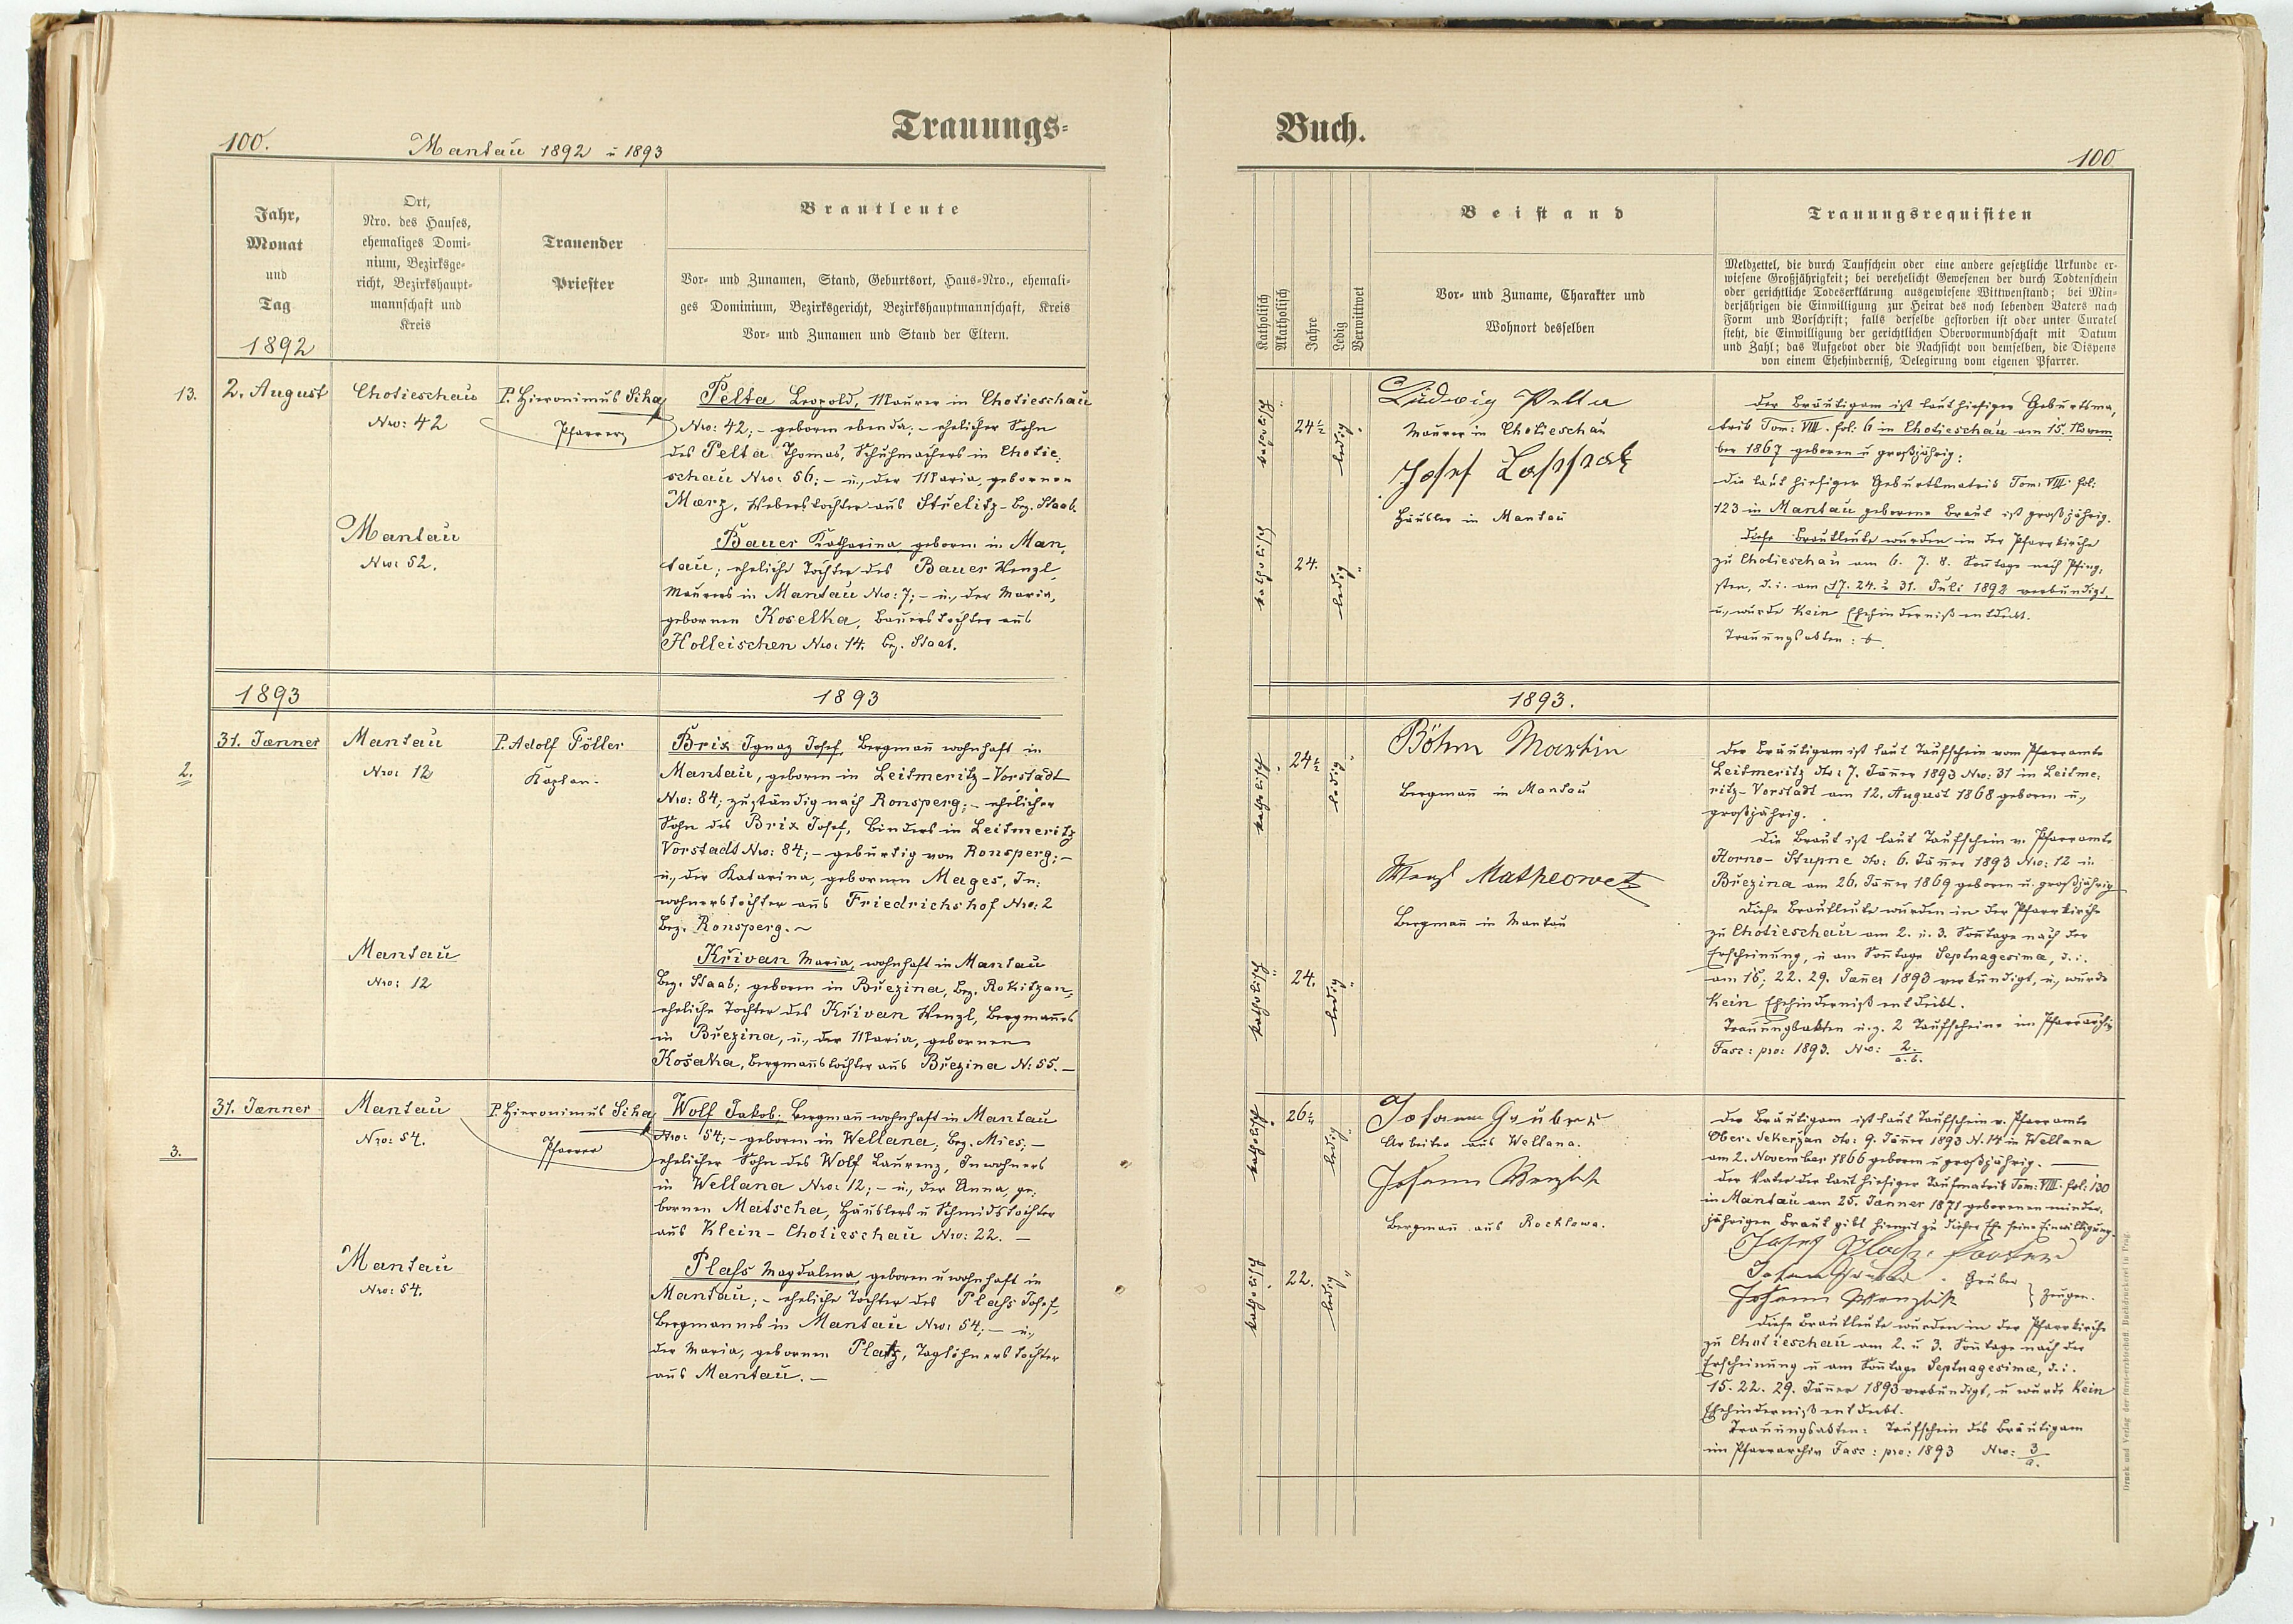 Trauungs=
100.
Mantau 1892 u 1893
Jahr,
Monat
und
Tag
1892
Ort,
Nro. des Hauses,
ehemaliges Domi-
nium, Bezirksge-
richt, Bezirkshaupt-
mannschaft und
Kreis
Trauender
Priester
Brautleute
Vor- und Zunamen, Stand, Geburtsort, Haus-Nro., ehemali-
ges Dominium, Bezirksgericht, Bezirkshauptmannschaft, Kreis
Vor- und Zunamen und Stand der Eltern.
13.
2. August
Chotieschau
Nro: 42
P. Hieronimus Siha
Pfarrer
Pelta Leopold, Maurer in Chotieschau
Nro: 42; - geboren ebenda; - ehelicher Sohn
des Pelta Thomas, Schuhmachers in Chotie:
schau Nro: 56; - u., der Maria, gebornen
Merz, Weberstochter aus Střelitz - Bez. Staab.
Mantau
Nro: 52.
Bauer Katharina, geboren in Man,
tau; eheliche Tochter des Bauer Wenzl,
Maurers in Mantau Nro: 7; - u., der Maria,
gebornen Kosetka, Bauerstochter aus
Holleischen Nro: 14. Bez. Staab.
1893
1893
2.
31. Jænner
Mantau
Nro: 12
P. Adolf Föller
Kaplan.
Brix Ignaz Josef, Bergmann̄ wohnhaft in
Mantau, geboren in Leitmeritz-Vorstadt
Nro: 84; zuständig nach Ronsperg; - ehelicher
Sohn des Brix Josef, Binders in Leitmeritz
Vorstadt Nro: 84; - gebürtig von Ronsperg; -
u., der Katarina, gebornen Mages, In:
wohnerstochter aus Friedrichshof Nro: 2
Bez. Ronsperg. ~
Mantau
Nro: 12
Křivan Maria, wohnhaft in Mantau
Bez. Staab; geboren in Březina, Bez. Rokitzan,
eheliche Tochter des Křivan Wenzl, Bergman̄es
in Březina, u., der Maria, gebornen
Košatka, Bergman̄stochter aus Březina N: 55. -
3.
31. Jænner
Mantau
Nro: 54.
P. Hieronimus Siha
Pfarrer
Wolf Jakob; Bergman̄ wohnhaft in Mantau
Nro: 54; - geboren in Wellana, Bez. Mies; -
ehelicher Sohn des Wolf Laurenz, Inwohners
in Wellana Nro: 12; - u., der Anna, ge:
bornen Matscha, Häuslers u Schmidstochter
aus Klein-Chotieschau Nro: 22. -
Mantau
Nro: 54.
Plass Magdalena, geboren u wohnhaft in
Mantau; - eheliche Tochter des Plass Josef,
Bergmannes in Mantau Nro: 54; - u.,
der Maria, gebornen Platz, Taglöhnerstochter
aus Mantau. -
Buch.
100
Katholisch
Akatholisch
Jahre
Ledig
Verwittwet
Beistand
Vor- und Zuname, Charakter und
Wohnort desselben
Trauungsrequisiten
Meldzettel, die durch Taufschein oder eine andere gesetzliche Urkunde er-
wiesene Großjährigkeit; bei verehelicht Gewesenen der durch Todtenschein
oder gerichtliche Todeserklärung ausgewiesene Wittwenstand; bei Min-
derjährigen die Einwilligung zur Heirat des noch lebenden Vaters nach
Form und Vorschrift; falls derselbe gestorben ist oder unter Curatel
steht, die Einwilligung der gerichtlichen Obervormundschaft mit Datum
und Zahl; das Aufgebot oder die Nachsicht von demselben, die Dispens
von einem Ehehinderniß, Delegirung vom eigenen Pfarrer.
katholisch
24½
ledig
Ludwig Pelta
Maurer in Chotieschau
Josef
Häusler in Mantau
katholisch
24.
ledig
Der Bräutigam ist laut hiesiger Geburtsma,
trik Tom: VIII. fol: 6 in Chotieschau am 15. Novem
ber 1867 geboren u großjährig:
Die laut hiesiger Geburtsmatrik Tom: VIII. fol:
123 in Mantau geborene Braut ist großjährig.
Diese Brautleute wurden in der Pfarrkirche
zu Chotieschau am 6. 7. 8. Son̄tage nach Pfing:
sten, d. i. am 17. 24. u 31. Juli 1892 verkündigt,
u., wurde kein Ehehinderniß entdeckt.
Trauungsakten:
1893.
katholisch
24½
ledig
Böhm Martin
Bergman̄ in Mantau
Wenzl Matheowetz
Bergman̄ in Mantau
katholisch
24.
ledig
Der Bräutigam ist laut Taufschein vom Pfarramte
Leitmeritz dto: 7. Jän̄er 1893 Nro: 31 in Leitme:
ritz-Vorstadt am 12. August 1868 geboren u.,
großjährig.
Die Braut ist laut Taufschein v. Pfarramte
Horno-Stupne dto: 6. Jän̄er 1893 Nro: 12 in
Březina am 26. Jän̄er 1869 geboren u. großjährig
Diese Brautleute wurden in der Pfarrkirche
zu Chotieschau am 2. u. 3. Son̄tage nach der
Erscheinung, u am Son̄tage Septuagesima, d. i.
am 15, 22. 29. Jän̄er 1893 verkündigt, u., wurde
kein Ehehinderniß entdeckt.
Trauungsakten u. z. 2 Taufscheine im Pfarrarchiv
Fasc: pro: 1893. Nro: 2./a.b.
katholisch
26
ledig
Johann Gruber
Arbeiter aus Wellana.
Johann Wenzlik
Bergman̄ aus Rochlowa.
katholisch
22.
ledig
Der Bräutigam ist laut Taufschein v. Pfarramte
Ober-Sekerzan dto: 9. Jän̄er 1893 N. 14 in Wellana
am 2. November 1866 geboren u großjährig.
Der Vater der laut hiesiger Taufmatrik Tom: VIII. fol: 130
in Mantau am 25. Jänner 1871 geborenen minder,
jährigen Braut gibt hiemit zu dieser Ehe seine Einwilligung.
Josef
Johann Gruber. Gruber
Johann Wenzlik } Zeugen.
Diese Brautleute wurden in der Pfarrkirche
zu Chotieschau am 2. u 3. Son̄tage nach der
Erscheinung u am Son̄tage Septuagesima, d. i.
15. 22. 29. Jän̄er 1893 verkündigt, u wurde kein
Ehehinderniß entdeckt.
Trauungsakten: Taufschein des Bräutigam
im Pfarrarchiv Fasc: pro: 1893 Nro: 3/a.
Druck und Verlag der fürst-erzbischöfl. Buchdruckerei in Prag.